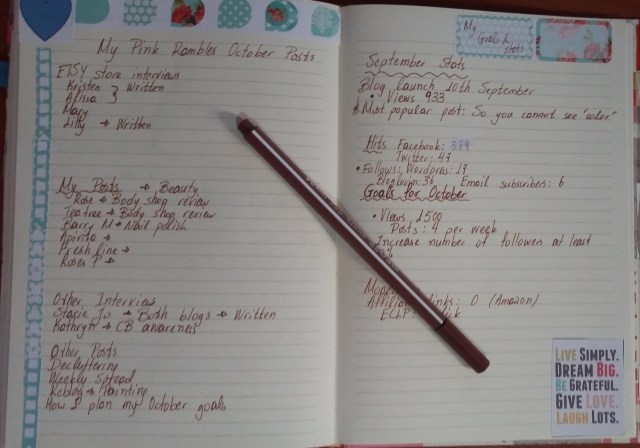 My Pink Rambles October Posts
ETSY store interviews
Kristen } Written
Alissa
Mary
Lilly → Written
My Posts → Beauty
Rose → Body shop review
Teatree → Body shop review
Barry M → Nail polish
Apivita →
Fresh line →
Roses P →
Other Interviews
Stacie Jo → Both blogs → Written
Kathryn → CB awareness
Other Posts
Decluttering
Weekly Spread
Reblog → Hainting
How I plan my October goals
My Goals & Stats
September Stats
Blog launch 10th September
• Views 933
Most popular post: So you cannot see "color"
Hits Facebook: 379
Twitter: 47
• Follows: Wordpress: 17
Bloglovin: 36 Email subscribers: 6
Goals for October
• Views 1500
Posts: 4 per week
Increase number of followers at least
links: 0 (Amazon)
LIVE SIMPLY.
DREAM BIG.
BE GRATEFUL.
GIVE LOVE.
LAUGH LOTS.